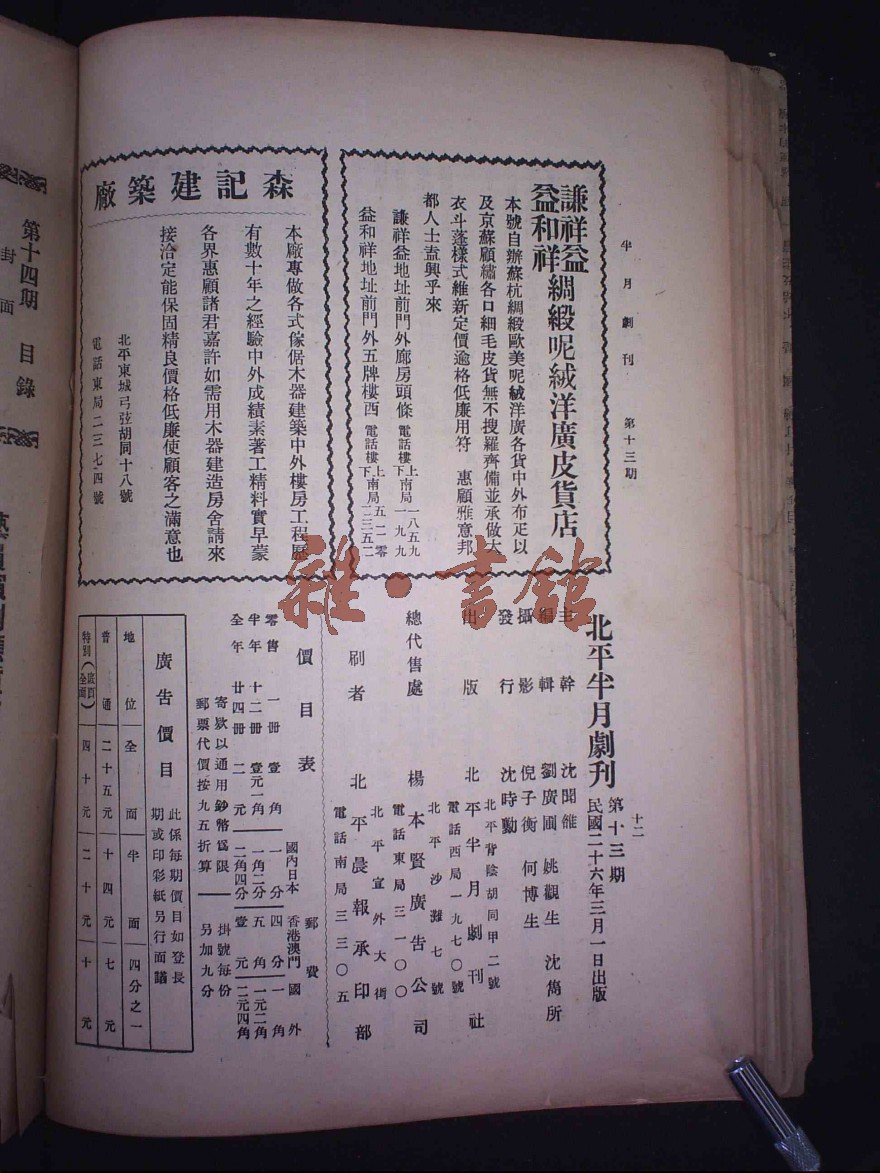 半月劇刊 第十三期
十二
謙祥益
益和祥
綢緞呢絨洋廣皮貨店
本號自辦蘇杭綢緞歐美呢絨洋廣各貨中外布疋以
及京蘇顧繡各口細毛皮貨無不搜羅齊備並承做大
衣斗蓬樣式維新定價逾格低廉用符 惠顧雅意邦
都人士盍興乎來
謙祥益地址前門外廊房頭條 電話樓上南局一八五九
下 一九九
益和祥地址前門外五牌樓西 電話樓上南局五二零
下 二三五二
森記建築廠
本廠專做各式傢俱木器建築中外樓房工程歷
有數十年之經驗中外成績素著工精料實早蒙
各界惠顧諸君嘉許如需用木器建造房舍請來
接洽定能保固精良價格低廉使顧客之滿意也
北平東城弓弦胡同十八號
電話東局二三七四號
北平半月劇刊
第十三期
民國二十六年三月一日出版
主幹 沈聞雒
編輯 劉廣圃 姚觀生 沈雋所
攝影 倪子衡 何博生
發行 沈時勳
北平背陰胡同甲二號
出版 北平半月劇刊社
電話西局一九七〇號
北平沙灘七號
總代售處 楊本賢廣告公司
電話東局三一〇〇
北平宣外大街
印刷者 北平晨報承印部
電話南局三三〇五
價目表
郵費
國內日本 香港澳門 國外
零售 一冊 壹角 一分 四分 一角
半年 十二冊 壹元一角 一角二分 五角 一元二角
全年 廿四冊 二元 二角四分 壹元 二元四角
寄欵以通用鈔幣爲限 掛號每份
郵票代價按九五折算 另加九分
廣告價目
此係每期價目如登長
期或印彩紙另行面議
地位 全面 半面 四分之一
普通 二十五元 十四元 七元
特別(底頁全面) 四十元 二十元 十元
第十四期 目錄
封面
雜·書館